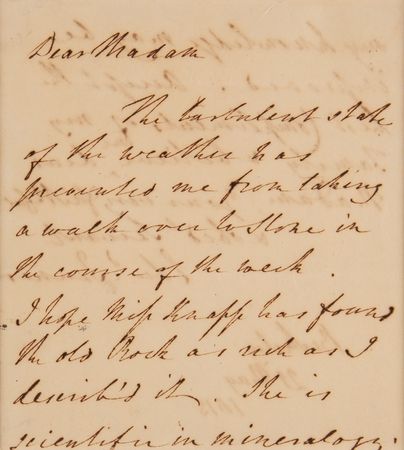 Dear Madam
The turbulent state
of the weather has
prevented me from taking
a walk over to Stone in
the course of the week.
I hope Miss Knapp has found
the old Rock as rich as I
describ'd it. She is
scientific in mineralogy.